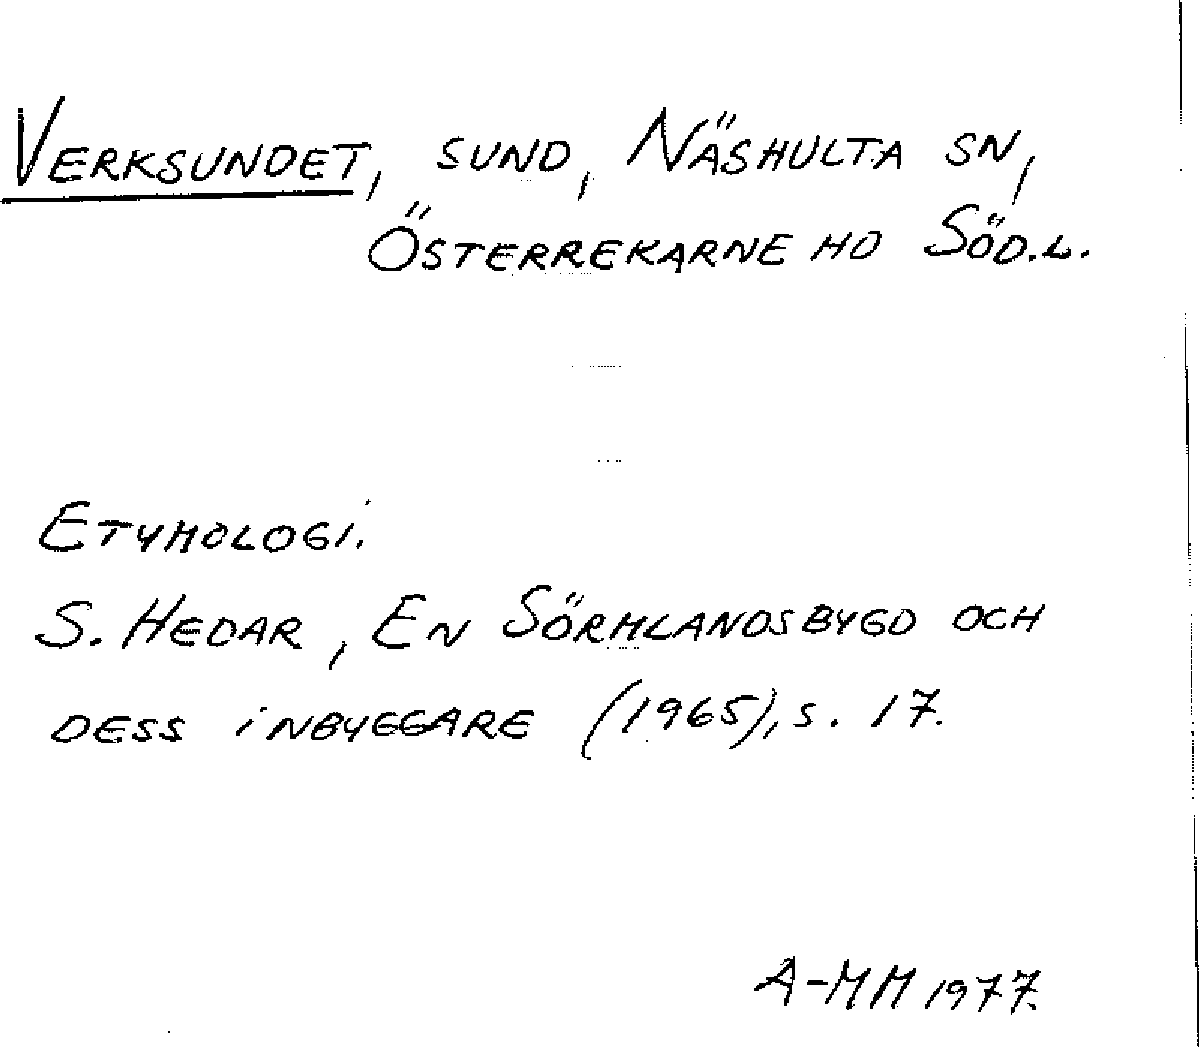 VERKSUNDET, SUND, NÄSHULTA SN,
ÖSTERREKARNE HD SÖD.L.
ETYMOLOGI.
S. HEDAR, EN SÖRMLANDSBYGD OCH
DESS INBYGGARE (1965), S. 17.
A-MM 1977.